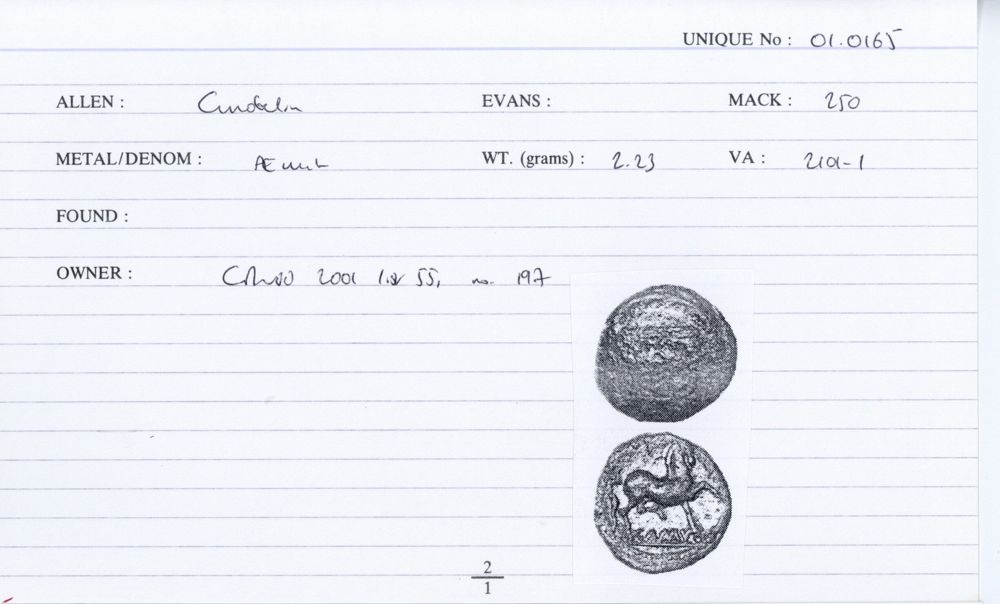 UNIQUE No : 01.0165
ALLEN : Cunobelin EVANS : MACK : 250
METAL/DENOM : Æ unit WT. (grams) : 2.23 VA : 2101-1
FOUND :
OWNER : 2001 list 55, no. 197
2
1